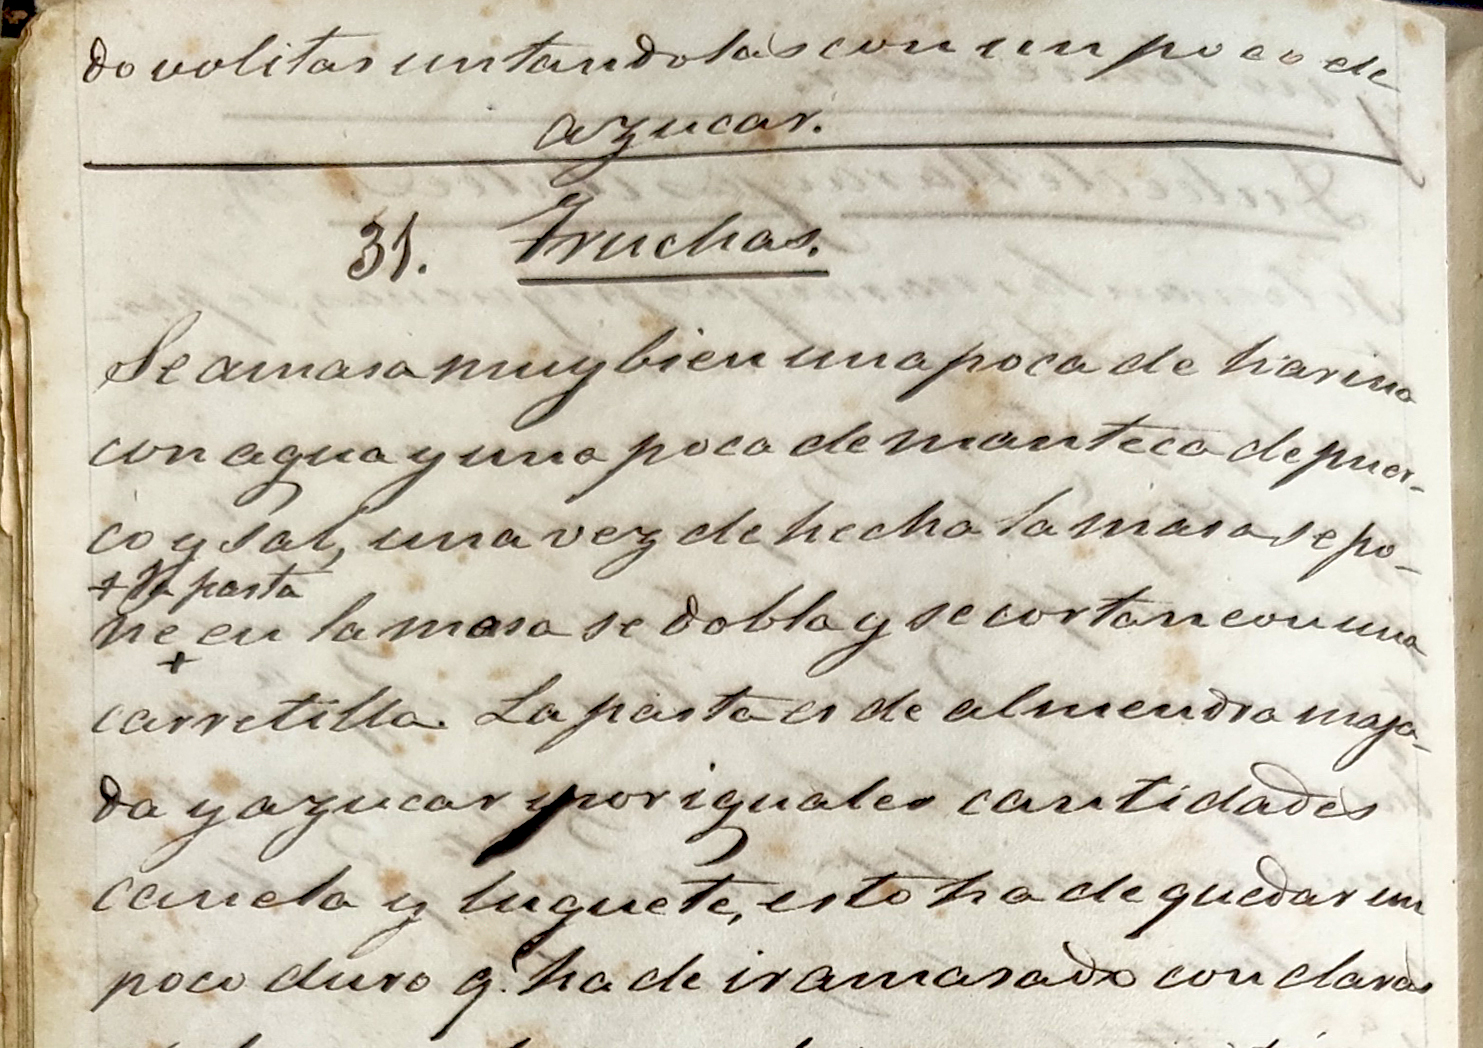 do volitas untandolas con un poco de
azucar.
31. Truchas.
Se amasa muy bien una poca de harina
con agua y una poca de manteca de puer-
co y sal, una vez de hecha la masa se po-
+ la pasta
ne en la masa se dobla y se cortan con una
+
carretilla. La pasta es de almendra maja-
da y azucar por iguales cantidades
canela y luguete, esto ha de quedar un
poco duro q. ha de ir amasado con claras